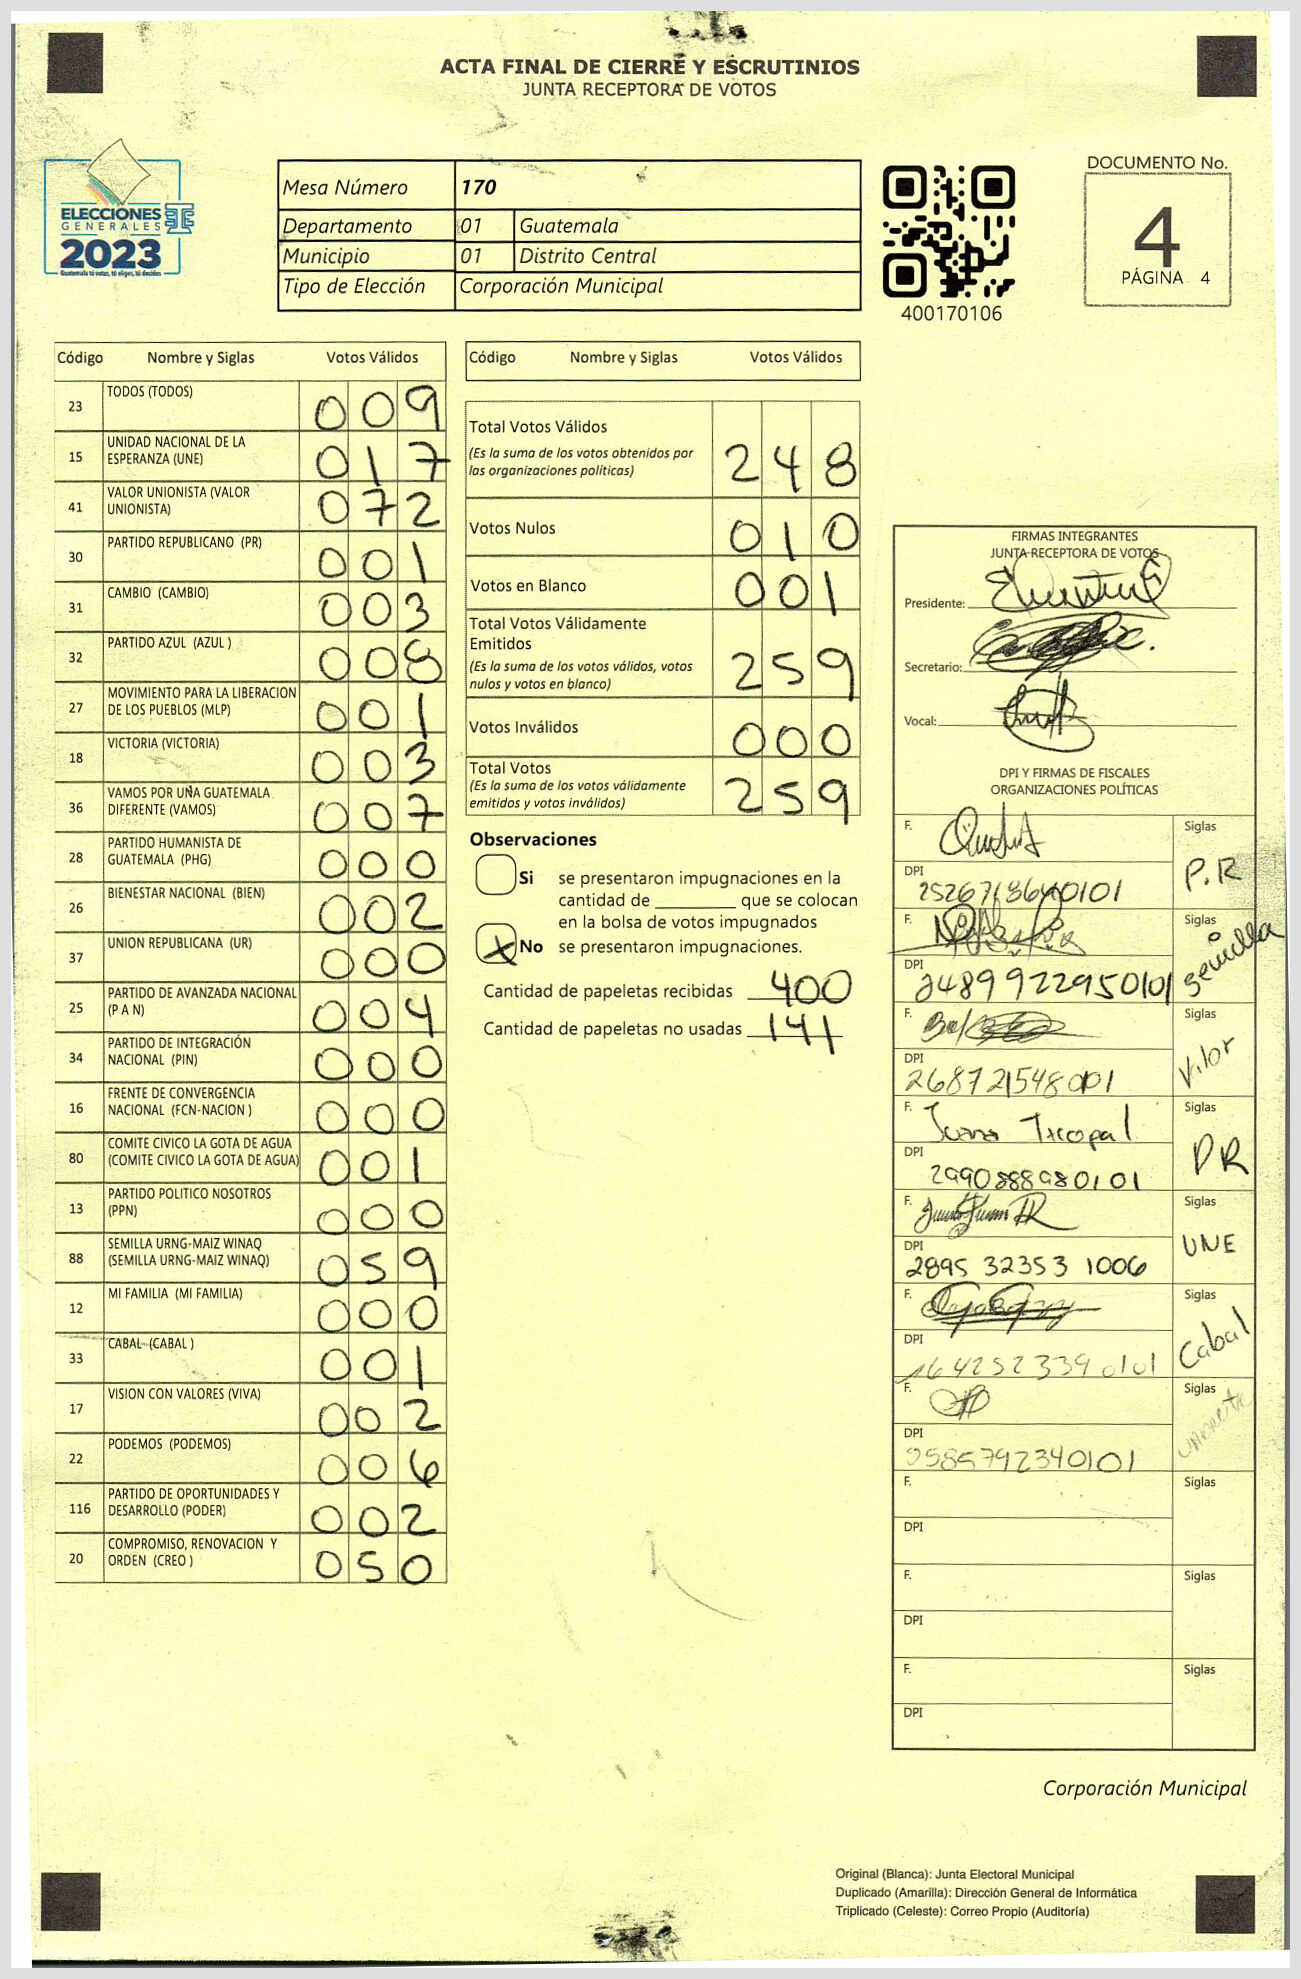 ACTA FINAL DE CIERRE Y ESCRUTINIOS
JUNTA RECEPTORA DE VOTOS
ELECCIONES
GENERALES
2023
Guatemala tú votas, tú eliges, tú decides
Mesa Número 170
Departamento 01 Guatemala
Municipio 01 Distrito Central
Tipo de Elección Corporación Municipal
400170106
DOCUMENTO No.
4
PÁGINA 4
Código Nombre y Siglas Votos Válidos
23 TODOS (TODOS) 009
15 UNIDAD NACIONAL DE LA
ESPERANZA (UNE) 017
41 VALOR UNIONISTA (VALOR
UNIONISTA) 072
30 PARTIDO REPUBLICANO (PR) 001
31 CAMBIO (CAMBIO) 003
32 PARTIDO AZUL (AZUL ) 008
27 MOVIMIENTO PARA LA LIBERACION
DE LOS PUEBLOS (MLP) 001
18 VICTORIA (VICTORIA) 003
36 VAMOS POR UNA GUATEMALA
DIFERENTE (VAMOS) 007
28 PARTIDO HUMANISTA DE
GUATEMALA (PHG) 000
26 BIENESTAR NACIONAL (BIEN) 002
37 UNION REPUBLICANA (UR) 000
25 PARTIDO DE AVANZADA NACIONAL
(P A N) 004
34 PARTIDO DE INTEGRACIÓN
NACIONAL (PIN) 000
16 FRENTE DE CONVERGENCIA
NACIONAL (FCN-NACION ) 000
80 COMITE CIVICO LA GOTA DE AGUA
(COMITE CIVICO LA GOTA DE AGUA) 001
13 PARTIDO POLITICO NOSOTROS
(PPN) 000
88 SEMILLA URNG-MAIZ WINAQ
(SEMILLA URNG-MAIZ WINAQ) 059
12 MI FAMILIA (MI FAMILIA) 000
33 CABAL (CABAL ) 001
17 VISION CON VALORES (VIVA) 002
22 PODEMOS (PODEMOS) 006
116 PARTIDO DE OPORTUNIDADES Y
DESARROLLO (PODER) 002
20 COMPROMISO, RENOVACION Y
ORDEN (CREO ) 050
Código Nombre y Siglas Votos Válidos
Total Votos Válidos
(Es la suma de los votos obtenidos por
las organizaciones políticas) 248
Votos Nulos 010
Votos en Blanco 001
Total Votos Válidamente
Emitidos
(Es la suma de los votos válidos, votos
nulos y votos en blanco) 259
Votos Inválidos 000
Total Votos
(Es la suma de los votos válidamente
emitidos y votos inválidos) 259
Observaciones
Si se presentaron impugnaciones en la
cantidad de ________ que se colocan
en la bolsa de votos impugnados
X No se presentaron impugnaciones.
Cantidad de papeletas recibidas 400
Cantidad de papeletas no usadas 141
FIRMAS INTEGRANTES
JUNTA RECEPTORA DE VOTOS
Presidente:
Secretario:
Vocal:
DPI Y FIRMAS DE FISCALES
ORGANIZACIONES POLÍTICAS
F. Siglas
P.R
DPI
F. Siglas
Semilla
DPI
2489922950101
F. Siglas
Valor
DPI
F. Juana Ixcopal Siglas
PR
DPI
2990888980101
F. Siglas
UNE
DPI
2895 32353 1006
F. Siglas
Cabal
DPI
1642523390101
F. Siglas
DPI
F. Siglas
DPI
F. Siglas
DPI
F. Siglas
DPI
Corporación Municipal
Original (Blanca): Junta Electoral Municipal
Duplicado (Amarilla): Dirección General de Informática
Triplicado (Celeste): Correo Propio (Auditoría)